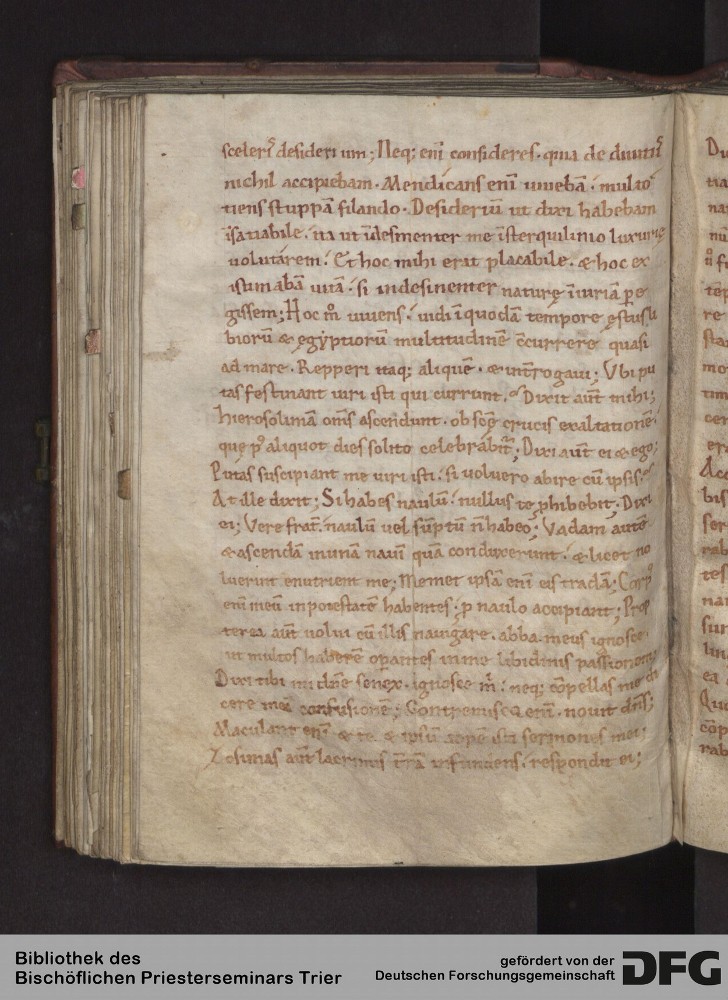 sceleris̄ desiderium; Neq; enī consideres. quia de diuitiis̄
nichil accipiebam. Mendicans enī uiuebā. multo
tiens stuppā filando. Desideriū ut dixi habebam
īsatiabile. ita ut īdesinenter me īsterquilinio luxurię
uolutarem. Et hoc mihi erat placabile. & hoc ex
istimabā uitā. si indesinenter naturę īiuriā pe
gissem; Hoc m̊ uiuens. uidi īquodā tempore ęstus li
biorū & ęgyptiorū multitudinē c̄currere quasi
ad mare. Repperi itaq; aliquē. & int̄rogaui; Vbi pu
tas festinant uiri isti qui currunt. Dixit aūt mihi;
hierosolimā om̄s ascendunt. ob scę̄ crucis exaltationē.
quę p᷒ aliquot dies solito celebrabit̄; Dixi aūt ei & ego;
Putas suscipiant me uiri isti. si uoluero abire cū ipsis
At ille dixit; Si habes naulū. nullus te phibebit; Dixi
ei; Vere frat̄. naulū uel sūptū n̄ habeo; Vadam autē
& ascendā inunā nauī quā conduxerunt. & licet no
luerint enutrient me; Memet ipsā enī eis tradā; Corp᷒
enī meū inpotestatē habentes. p naulo accipiant; Prop
terea aūt uolui cū illis nauigare. abba meus ignosce.
ut multos haberē opantes in me libidinis passionem;
Dixi tibi mi dn̄e senex. ignosce m̄. neq; cōpellas me di
cere meā confusionē; Contremisco enī. nouit dn̄s;
Maculant enī & te. & ipsū aerē isti sermones mei;
Zosimas aūt lacrimis t̄rā infundens. respondit ei;
Bibliothek des
Bischöflichen Priesterseminars Trier
gefördert von der
Deutschen Forschungsgemeinschaft
DFG